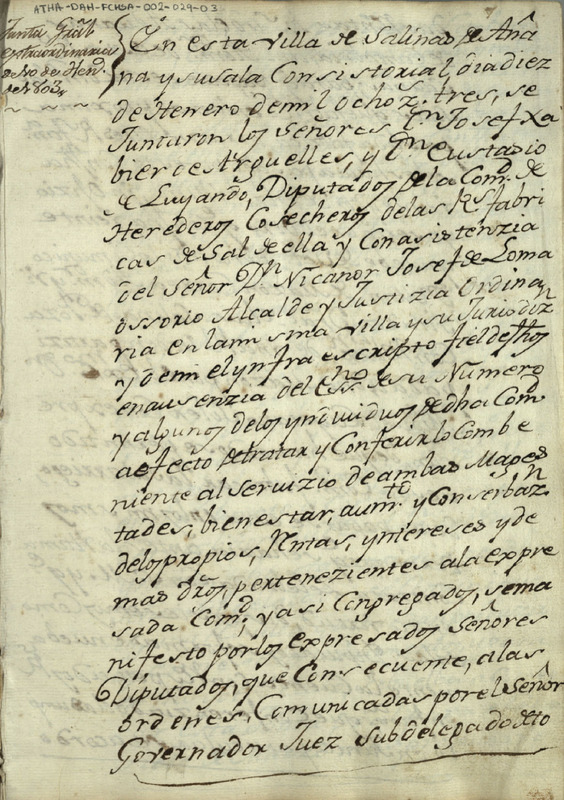 ATHA-DAH-FCHSA-002-029-03
Junta Gräl
extraordinaria
de 10 de Hen.º
de 1803,,
En esta villa de Salinas de Aña
na y su sala Consistorial, â dia diez
de Henero de mil ochoz.s tres, se
Juntaron los Señores Dn Josef Xa
bier de Arguelles, y Dn Eustasio
de Luyando, Diputados de la Comd de
Herederos Cosecheros de las Rs fabri
cas de Sal de ella y Con asistenzia
del Señor Dn Nicanor Josef de Loma
ossorio Alcalde y Justizia Ordina
ria en la misma villa y su Jurisdizn
y de mi el ynfraescripto fiel de fhos
en ausenzia del Essno de su Numero
y algunos de los yndividuos de dha Comd
a efecto de tratar y Conferir lo Combe
niente al servizio de ambas Mages
tades, bien estar, aumto y Conserbazn
de los propios, Rentas, yntereses y de
mas dros, pertenezientes a la expre
sada Comd, y asi Congregados, se ma
nifesto por los expresados Señores
Diputados, que Consecuente, a las
ordenes, Comunicadas por el Señor
Governador Juez subdelegado de to